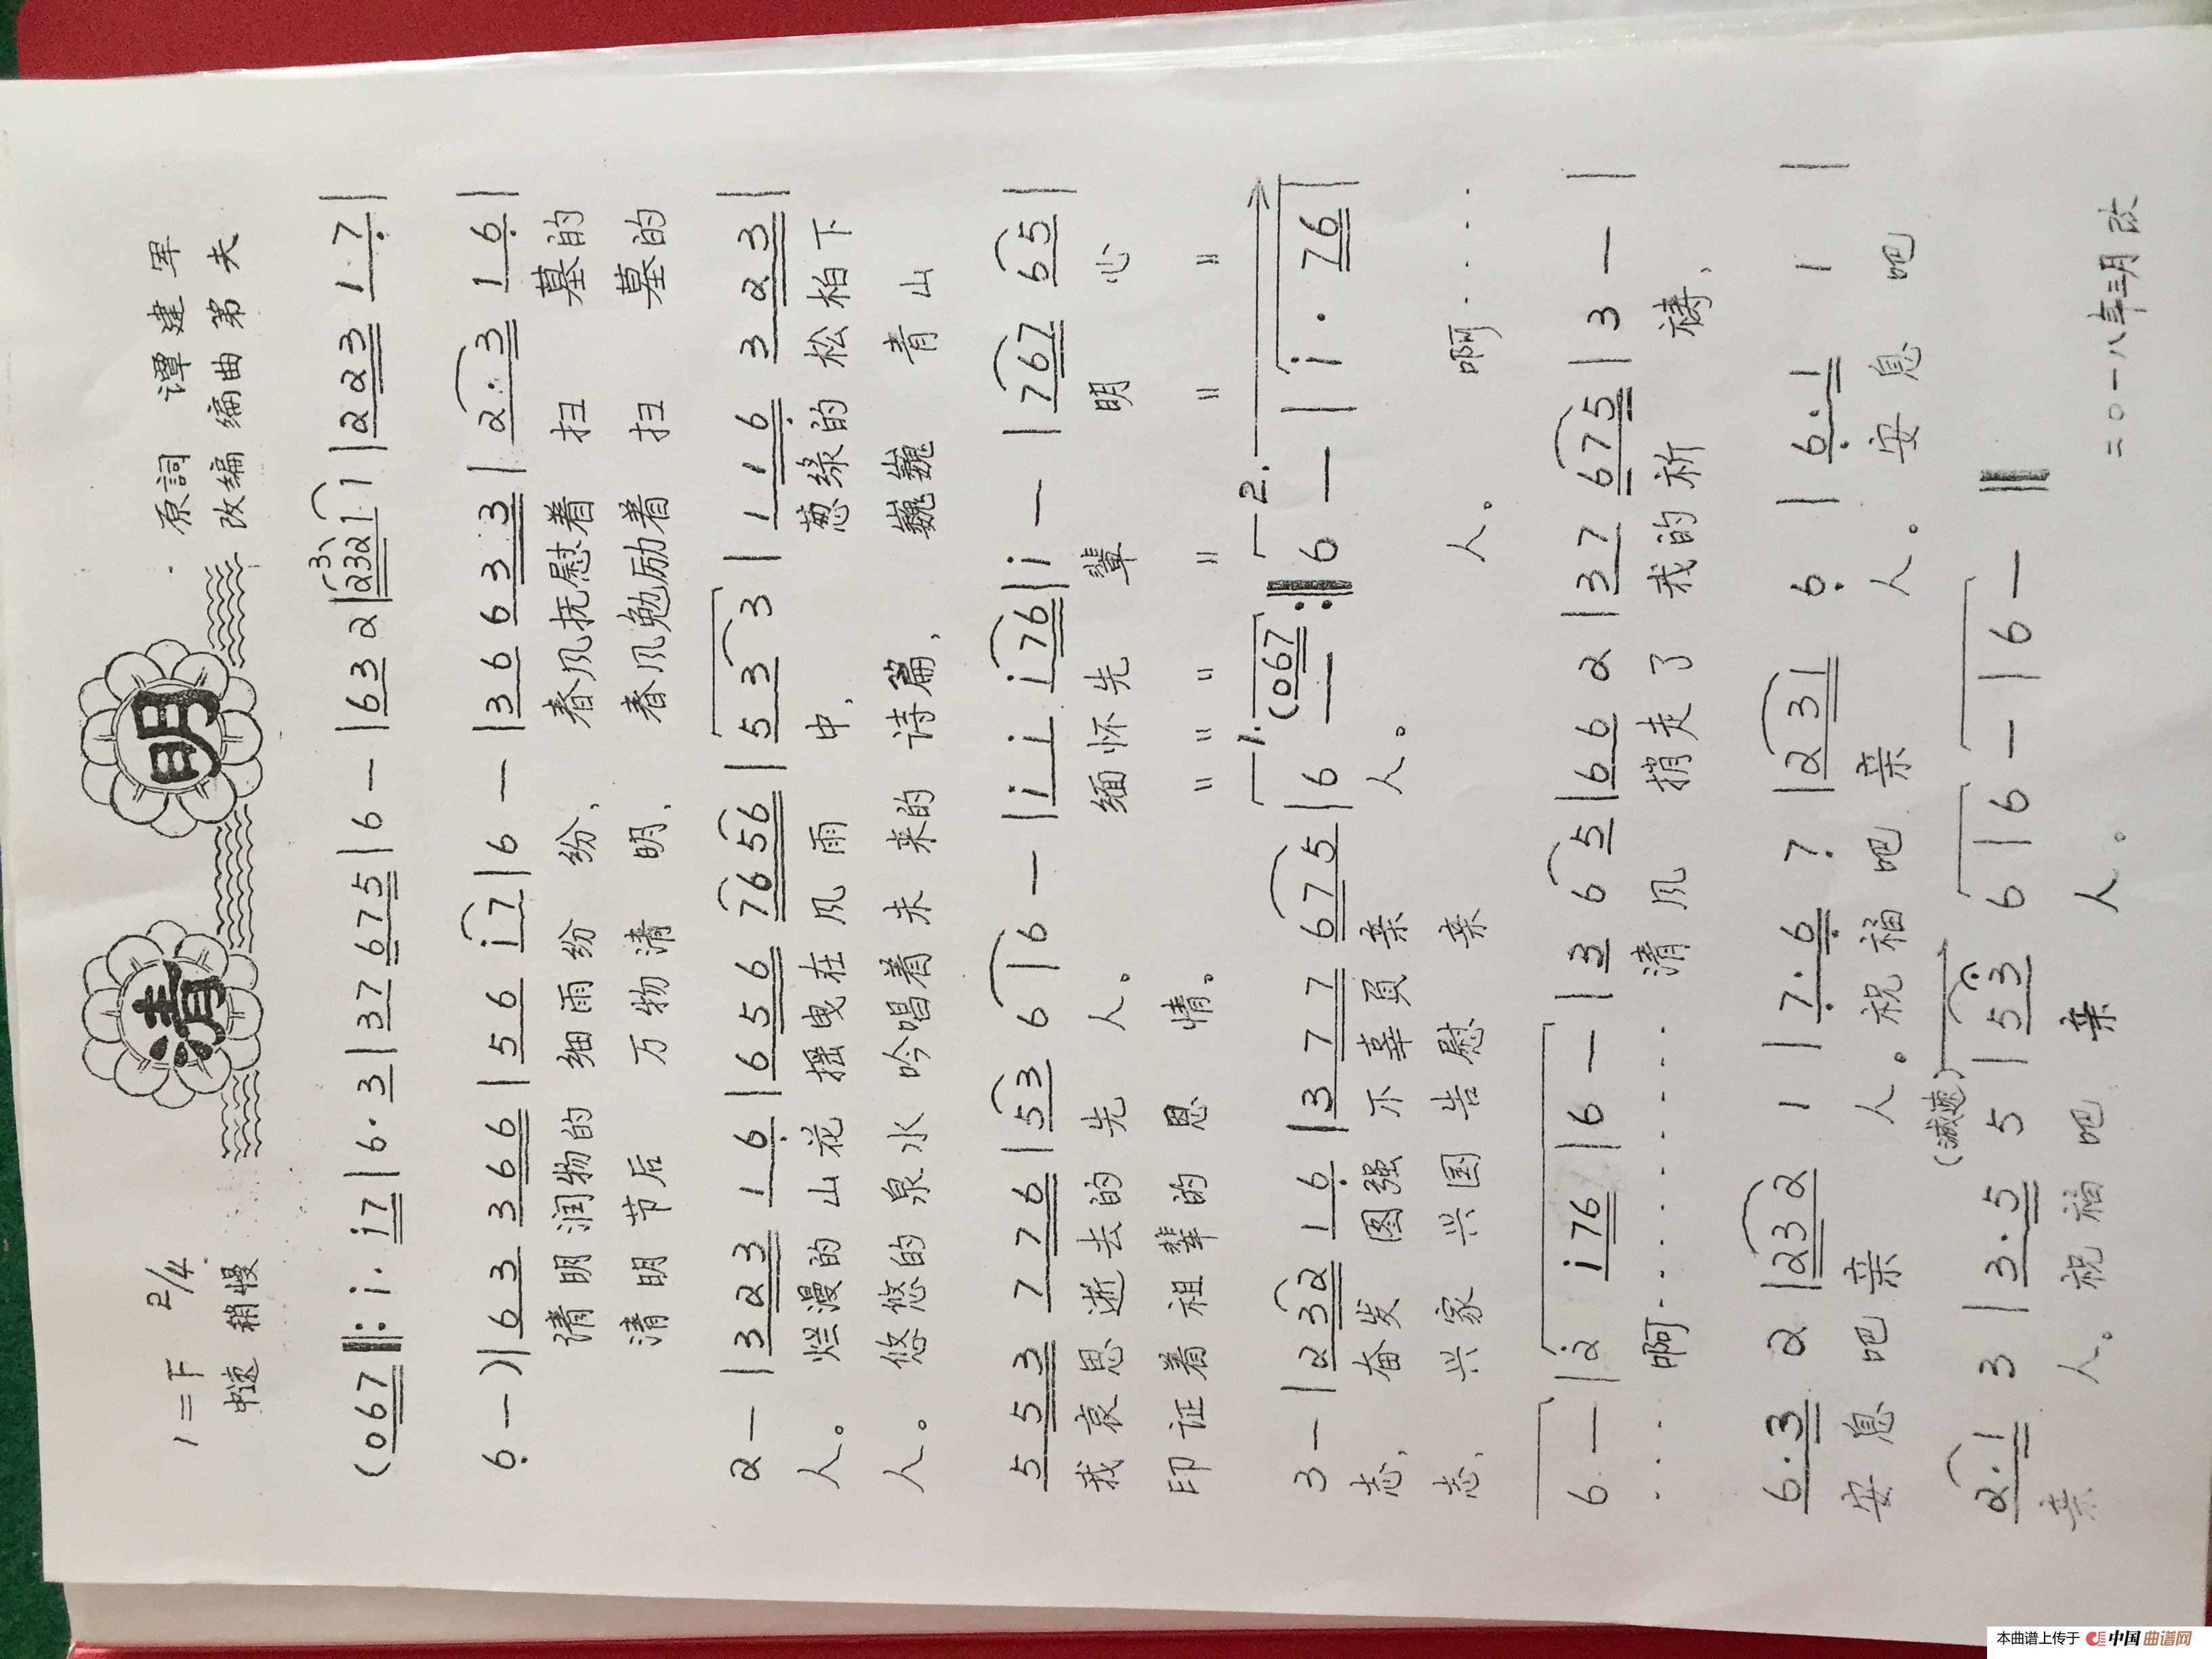 清明
1=F 2/4 原詞 谭建军
中速 稍慢 改编 编曲 第夫
(067‖: i· i7 | 6· 3 | 37 675 | 6 — | 63 2 | 2321 1 | 223 1 7 |
6 — ) | 63 366 | 56 i7 | 6 — | 36 633 | 2·3 16 |
清明润物的 细雨纷纷, 春风抚慰着 扫墓的
清明节后 万物清明, 春风勉励着 扫墓的
2 — | 323 16 | 656 7656 | 53 3 | 116 323 |
人。 烂漫的山花 摇曳在风雨中, 葱绿的松柏下
人。 悠悠的泉水 吟唱着未来的诗篇, 巍巍青山
553 776 | 53 6 | 6 — | ii i76 | i — | 767 65 |
我哀思逝去的先人。 缅怀先辈 明心
印证着祖辈的恩情。 〃 〃 〃 〃 〃 〃
1. 2.
3 — | 232 16 | 377 675 | 6 — (067 :‖ 6 — | i· 76 |
志, 奋发图强 不辜負亲人。 人。 啊·····
志, 兴家兴国 告慰亲
6 — | 2 i76 | 6 — | 3 65 | 66 2 | 37 675 | 3 — |
···· 啊·········· 清风 捎走了 我的祈祷,
6·3 2 | 232 1 | 7·6 7 | 231 6 | 6·1 1 |
安息吧亲人。祝福吧亲人。安息吧
(减速)
2·1 3 | 3·5 5 | 53 6 | 6 — | 6 — ‖
亲人。 祝福吧 亲人。
二〇一八年三月改
本曲谱上传于 中国曲谱网